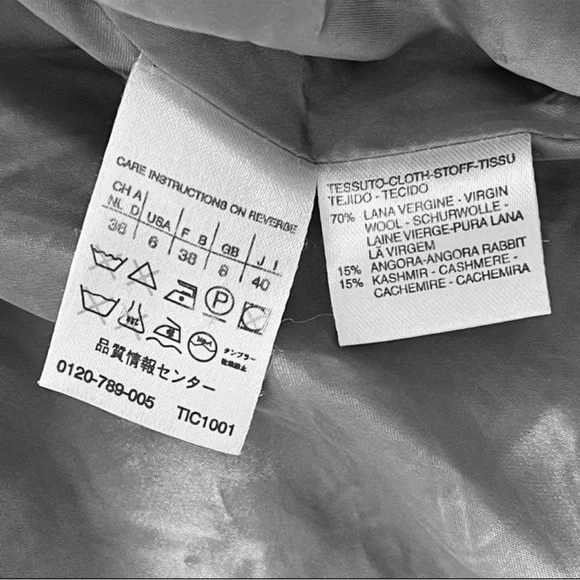 CARE INSTRUCTIONS ON REVERSE
CH A
NL D USA F B GB J I
36 6 38 8 40
P
品質情報センター
タンブラー
乾燥禁止
0120-789-005 TIC1001
TESSUTO-CLOTH-STOFF-TISSU
TEJIDO - TECIDO
70% LANA VERGINE - VIRGIN
WOOL - SCHURWOLLE -
LAINE VIERGE-PURA LANA
LÀ VIRGEM
15% ANGORA-ANGORA RABBIT
15% KASHMIR - CASHMERE -
CACHEMIRE - CACHEMIRA